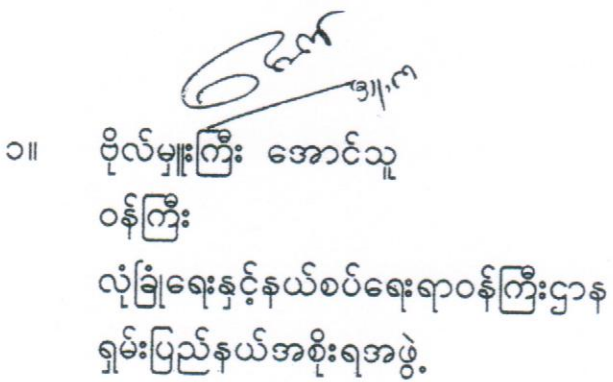 ၁။ ဗိုလ်မှူးကြီး အောင်သူ
ဝန်ကြီး
လုံခြုံရေးနှင့်နယ်စပ်ရေးရာဝန်ကြီးဌာန
ရှမ်းပြည်နယ်အစိုးရအဖွဲ့